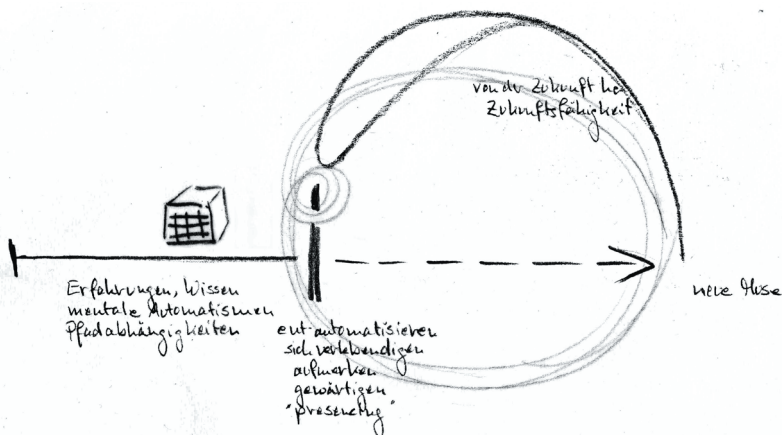 von der Zukunft her
Zukunftsfähigkeit
Erfahrungen, Wissen
mentale Automatismen
Pfadabhängigkeiten
ent-automatisieren
sich verlebendigen
aufmerken
gewärtigen
"presencing"
neue